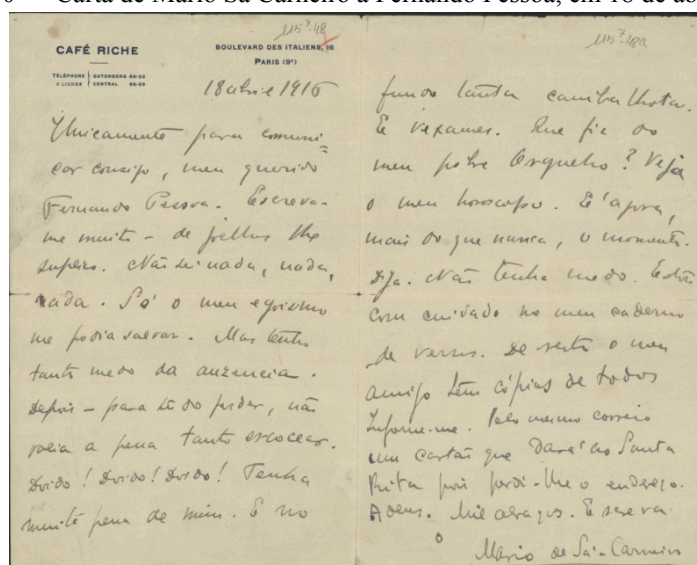 Carta de Mário Sá Carneiro a Fernando Pessoa, em 18 de
115³-48
CAFÉ RICHE
BOULEVARD DES ITALIENS, 16
PARIS (9e)
TÉLÉPHONE GUTENBERG
2 LIGNES CENTRAL
18 abril 1916
Unicamente para comuni=
car consigo, meu querido
Fernando Pessoa. Escreva-
me muito - de joelhos lhe
suplico. Não sei nada, nada,
nada. Só o meu egoismo
me podia salvar. Mas tenho
tanto medo da auzencia.
Depois - para tudo perder, não
valia a pena tanto escoucear.
Doido! Doido! Doido! Tenha
muita pena de mim. E no
115³-48a
fundo tanta cambalhota.
E vexames. Que fiz do
meu pobre Orgulho? Veja
o meu horoscopo. É agora,
mais do que nunca, o momento.
Diga. Não tenha medo. Estou
com cuidado no meu caderno
de versos. De resto o meu
amigo tem cópias de todos
Informe-me. Pelo mesmo correio
um cartão que dará ao Santa
Rita pois perdi-lhe o endereço.
Adeus. Mil abraços. Escreva
o
Mario de Sá-Carneiro